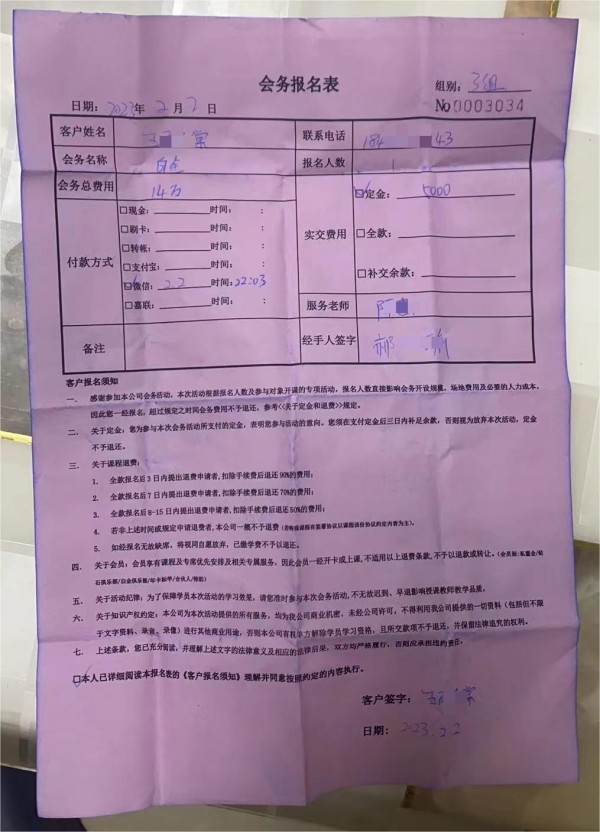 会务报名表
组别：3组
日期：2023年 2 月 2 日
No 0003034
客户姓名
联系电话 184 43
会务名称
报名人数 1
会务总费用 14万
付款方式
□现金： 时间： ：
□刷卡： 时间： ：
□转帐： 时间： ：
□支付宝： 时间： ：
☑微信：2.2 时间：22:03
□嘉联： 时间： ：
实交费用
☑定金：5000
□全款：
□补交余款：
服务老师
备注
经手人签字 郝
客户报名须知
一、 感谢参加本公司会务活动，本次活动根据报名人数及参与对象开课的专项活动，报名人数直接影响会务开设规模，场地费用及必要的人力成本，
因此您一经报名，超过规定之时间会务费用不予退还，参考<<关于定金和退费>>规定。
二、 关于定金：您为参与本次会务活动所支付的定金，表明您参与活动的意向。您须在支付定金后三日内补足余款，否则视为放弃本次活动，定金
不予退还。
三、 关于课程退费：
1. 全款报名后3日内提出退费申请者，扣除手续费后退还90%的费用；
2. 全款报名后7日内提出退费申请者，扣除手续费后退还70%的费用；
3. 全款报名后8-15日内提出退费申请者，扣除手续费后退还50%的费用；
4. 若非上述时间或规定申请退费者，本公司一概不予退费
5. 如经报名无故缺席，将视同自愿放弃，已缴学费不予以退还。
四、 关于会员：会员享有课程及专席优先安排及相关专属服务，因此会员一经开卡或上课，不适用以上退费条款，不予以退款或转让。
五、 关于活动纪律：为了保障学员本次活动的学习效果，请您准时参与本次会务活动，不无故迟到、早退影响授课教师教学品质。
六、 关于知识产权约定：本公司为本次活动提供的所有服务，均为我公司商业机密，未经公司许可，不得利用我公司提供的一切资料（包括但不限
于文字资料、录音、录像）进行其他商业用途，否则本公司有权单方解除学员学习资格，且所交款项不予退还，并保留法律追究的权利。
七、 上述条款，您已充分阅读，并理解上述文字的法律意义及相应的法律后果，双方均严格履行，否则应承担违约责任。
□本人已详细阅读本报名表的《客户报名须知》理解并同意按照约定的内容执行。
客户签字：
日期：2023.2.2